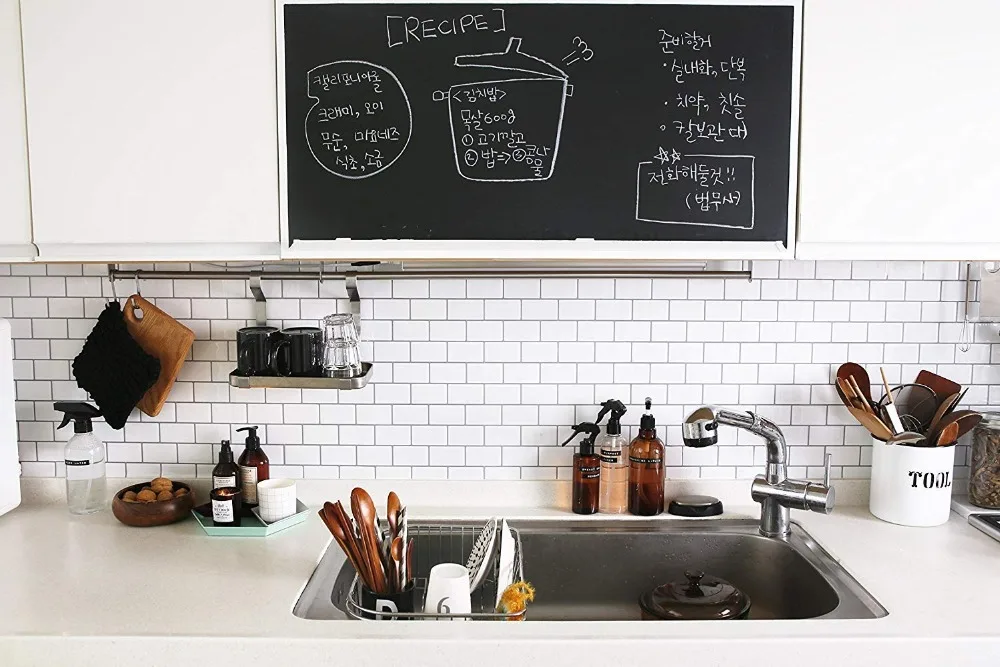 [RECIPE]
캘리포니아롤
크래미, 오이
무순, 마요네즈
식초, 소금
<김치밥>
목살600g
① 고기깔고
② 밥=>③콩나
물
준비할거
·실내화, 단복
·치약, 칫솔
·칼보관대
전화해둘것!!
(법무사)
TOOL
6